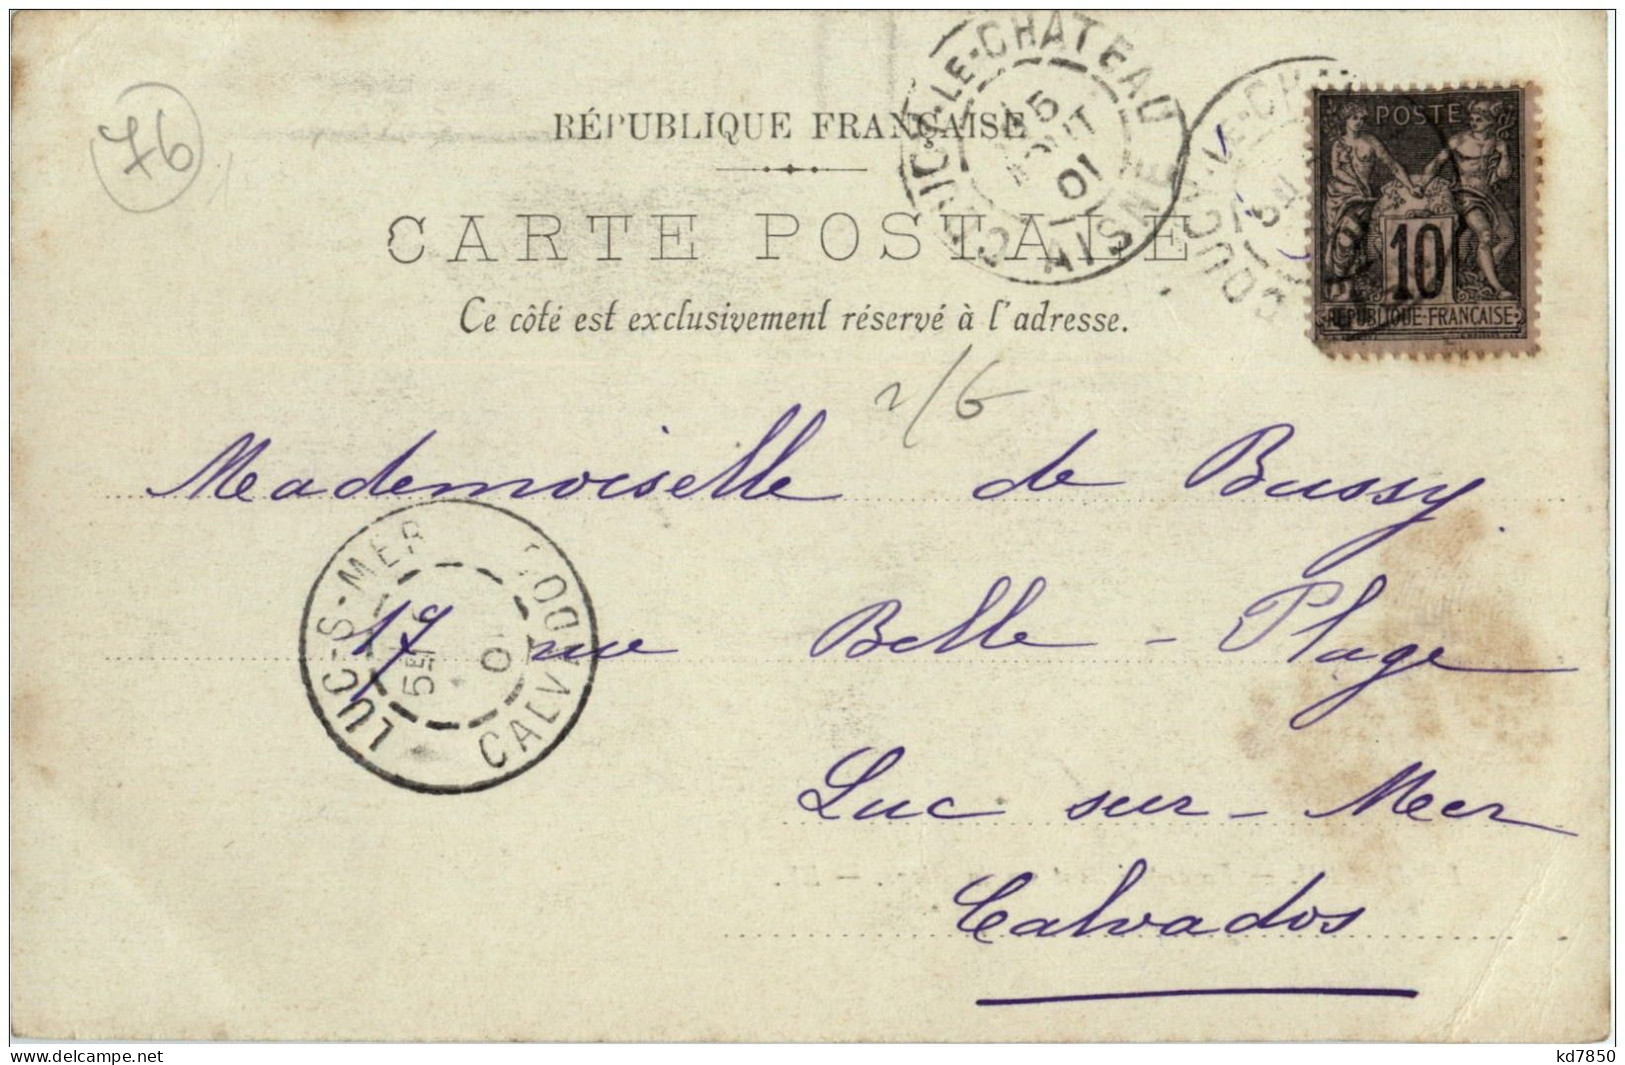 76
RÉPUBLIQUE FRANÇAISE
CARTE POSTALE
Ce côté est exclusivement réservé à l'adresse.
COUCY-LE-CHATEAU
AOUT
01
AISNE
POSTE
10
REPUBLIQUE FRANÇAISE
Mademoiselle de Bussy
17 rue Belle-Plage
Luc sur-Mer
Calvados
LUC-S-MER
CALVADOS
delcampe.net
kd7850